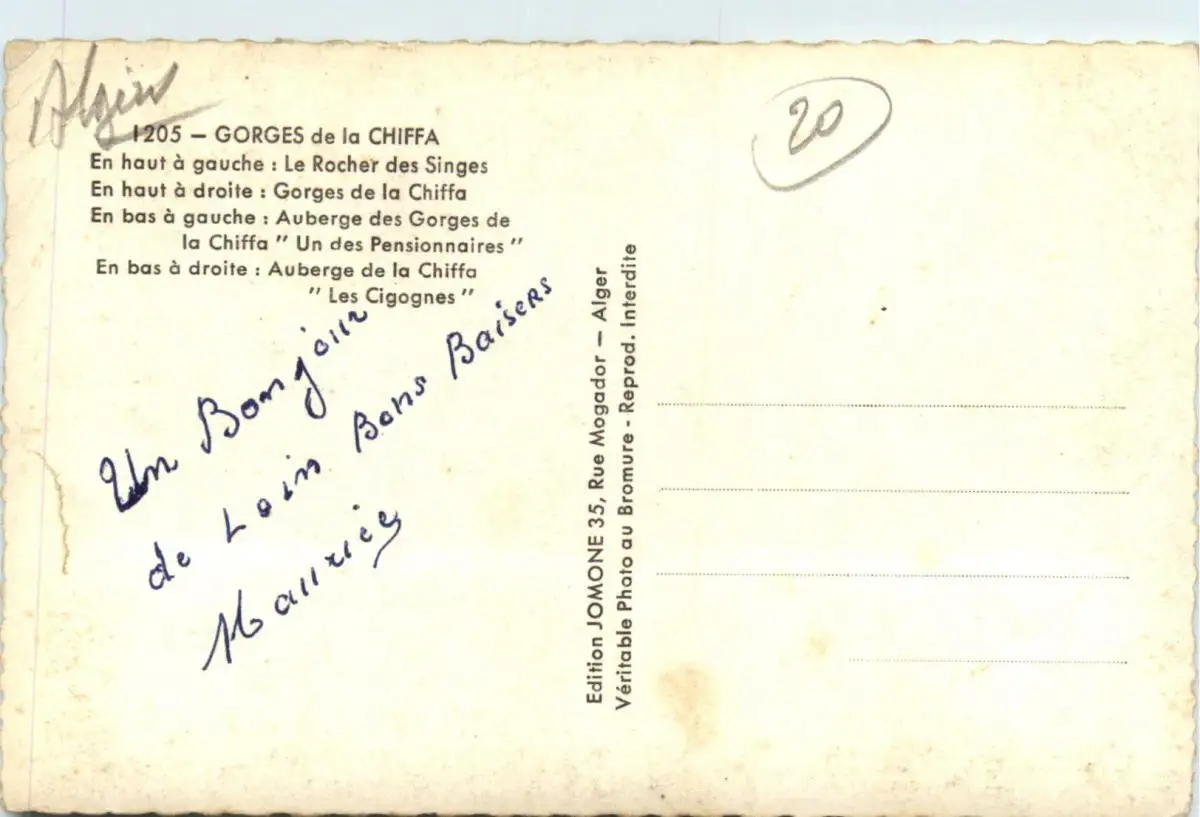 20
1205 – GORGES de la CHIFFA
En haut à gauche : Le Rocher des Singes
En haut à droite : Gorges de la Chiffa
En bas à gauche : Auberge des Gorges de
la Chiffa " Un des Pensionnaires "
En bas à droite : Auberge de la Chiffa
" Les Cigognes "
Un Bonjour
de Loin Bons Baisers
Maurice
Edition JOMONE 35, Rue Mogador – Alger
Véritable Photo au Bromure - Reprod. Interdite